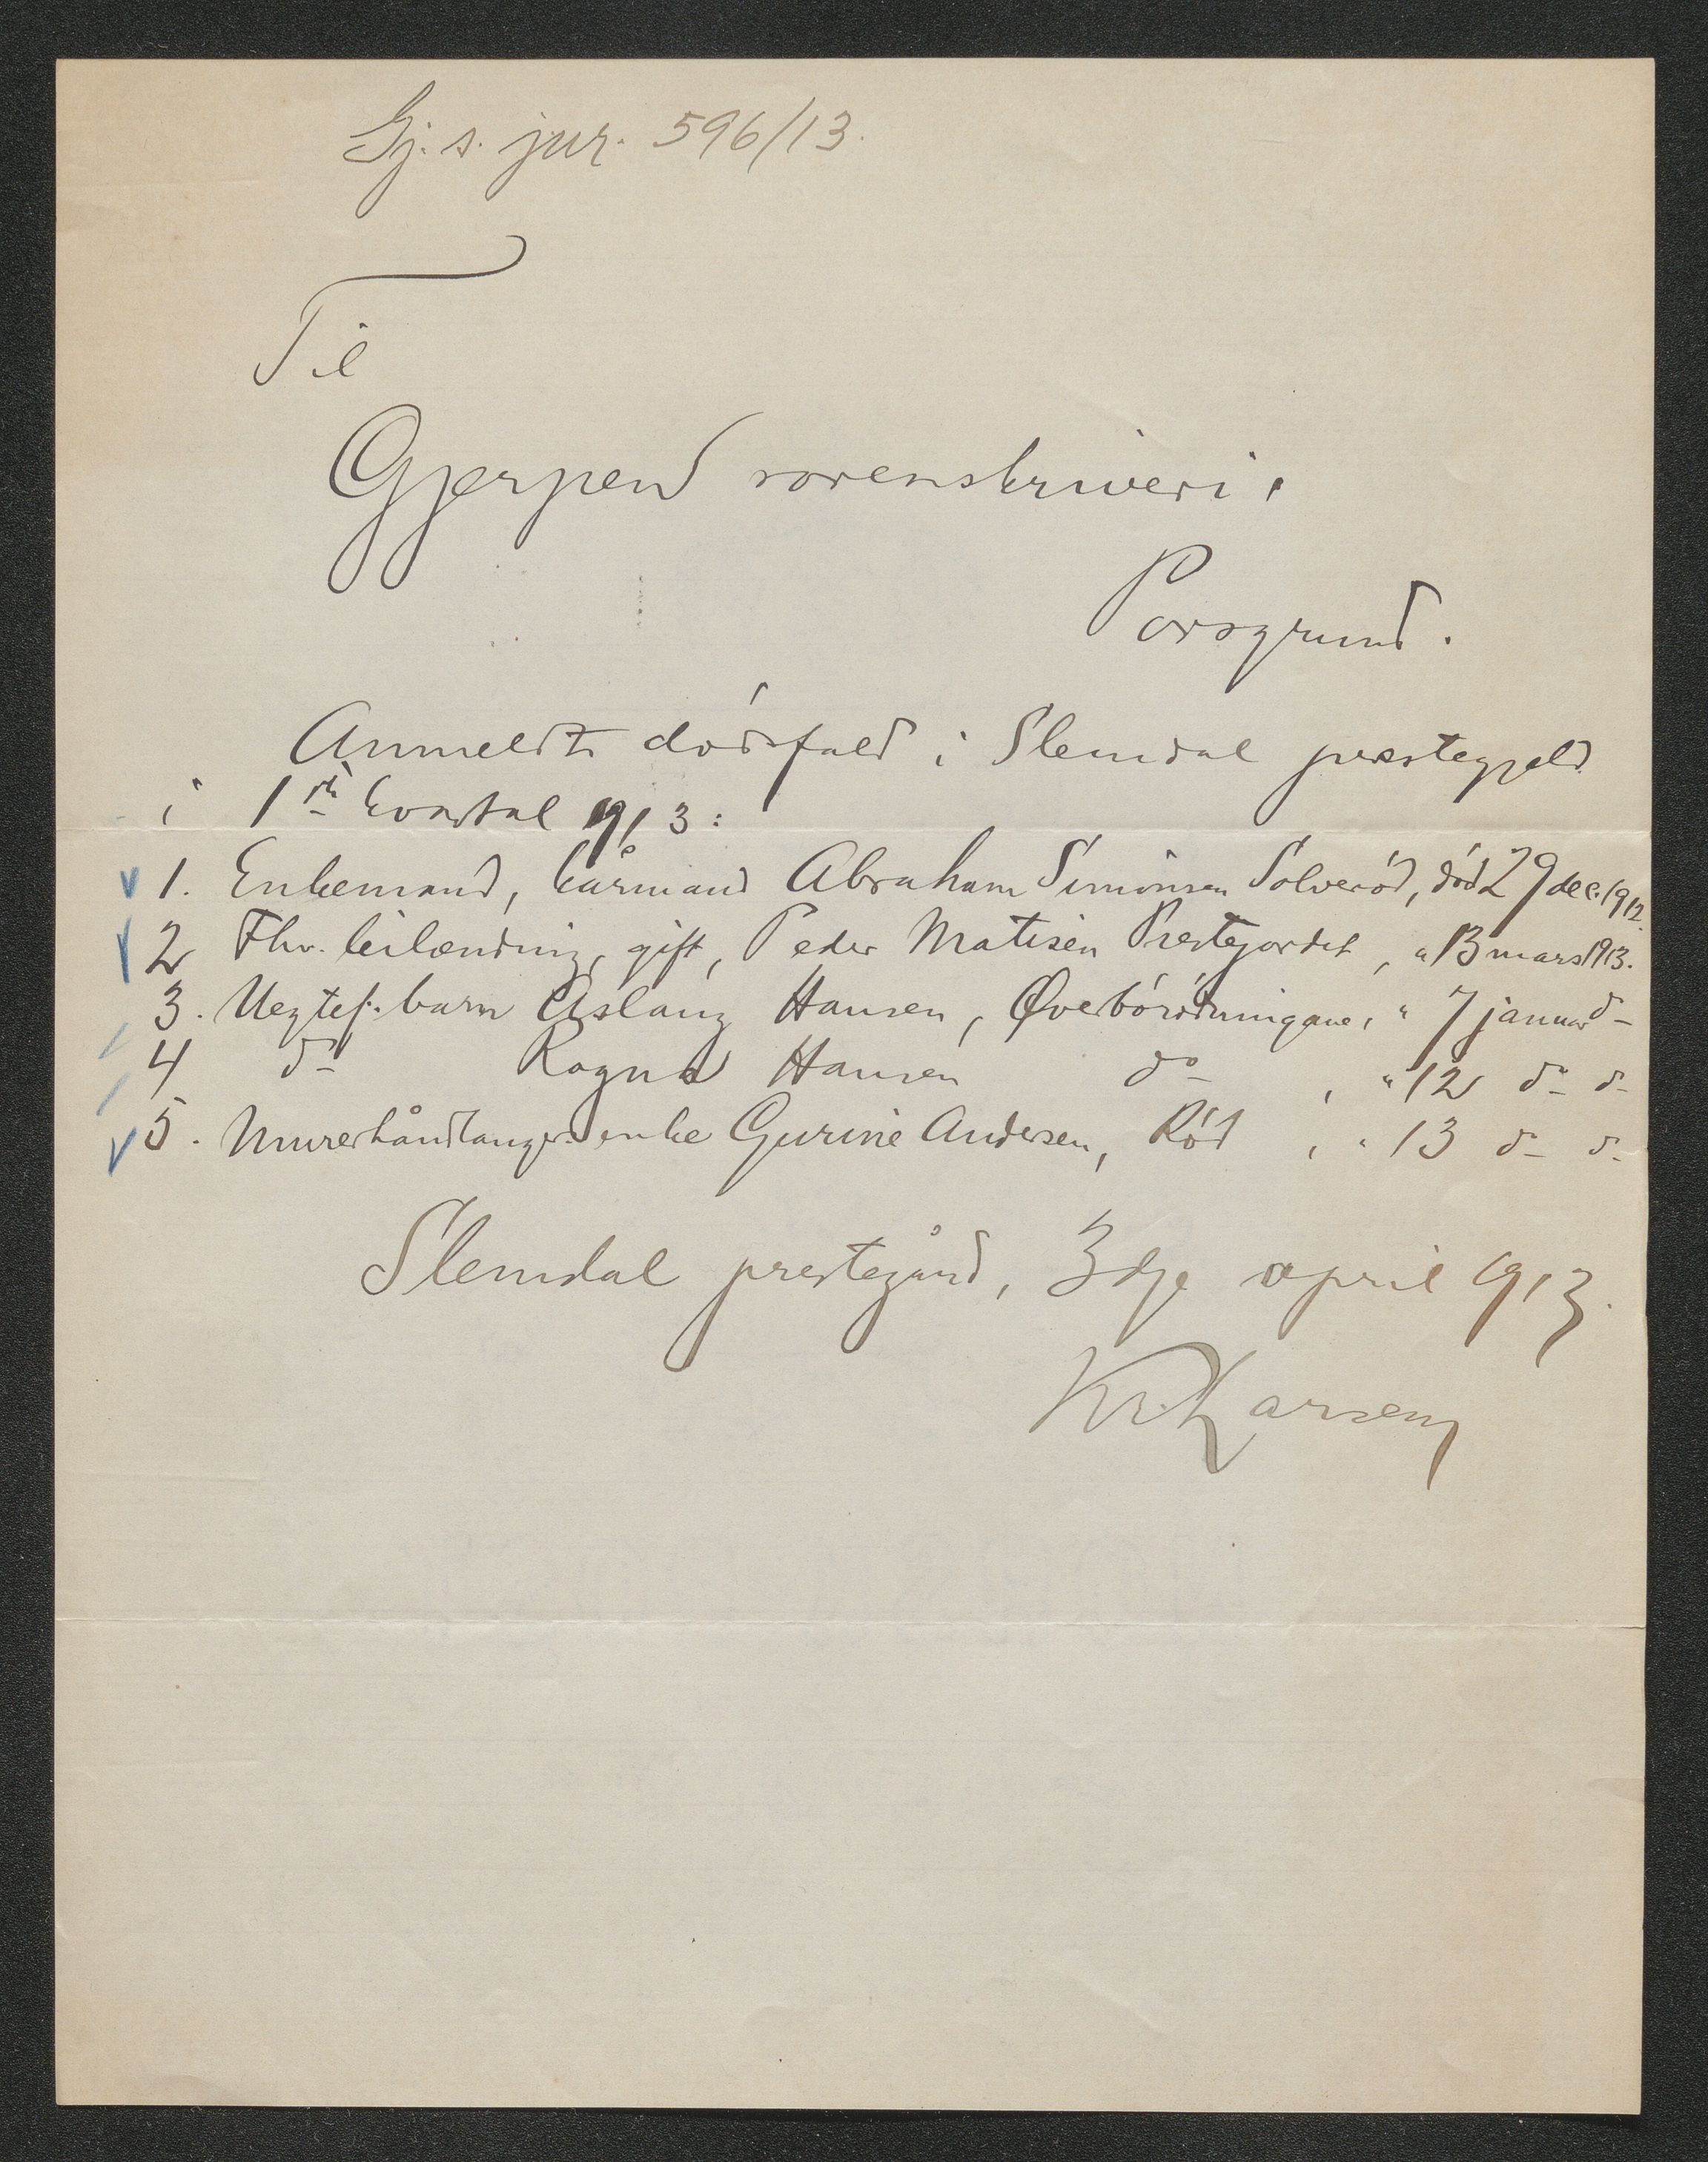 Gj. s. jur. 596/13.
Til
Gjerpen sorenskriveri,
Porsgrund.
Anmeldte dødsfald i Slemdal prestegjeld
i 1ste kvartal 1913:
1. Enkemand, kårmand Abraham Simonsen Solverød, død 29 dec. 1912.
2 Fhv. leilænding, gift, Peder Matisen Prestejordet, " 13 mars 1913.
3. Uegtef. barn Aslaug Hansen, " 7 januar do
4 do Ragna Hansen do, " 12 do do
5. Murerhåndlanger enke Gurine Andersen, Rød, " 13 do do
Slemdal prestegård, 3dje april 1913.
Kr. Larsen